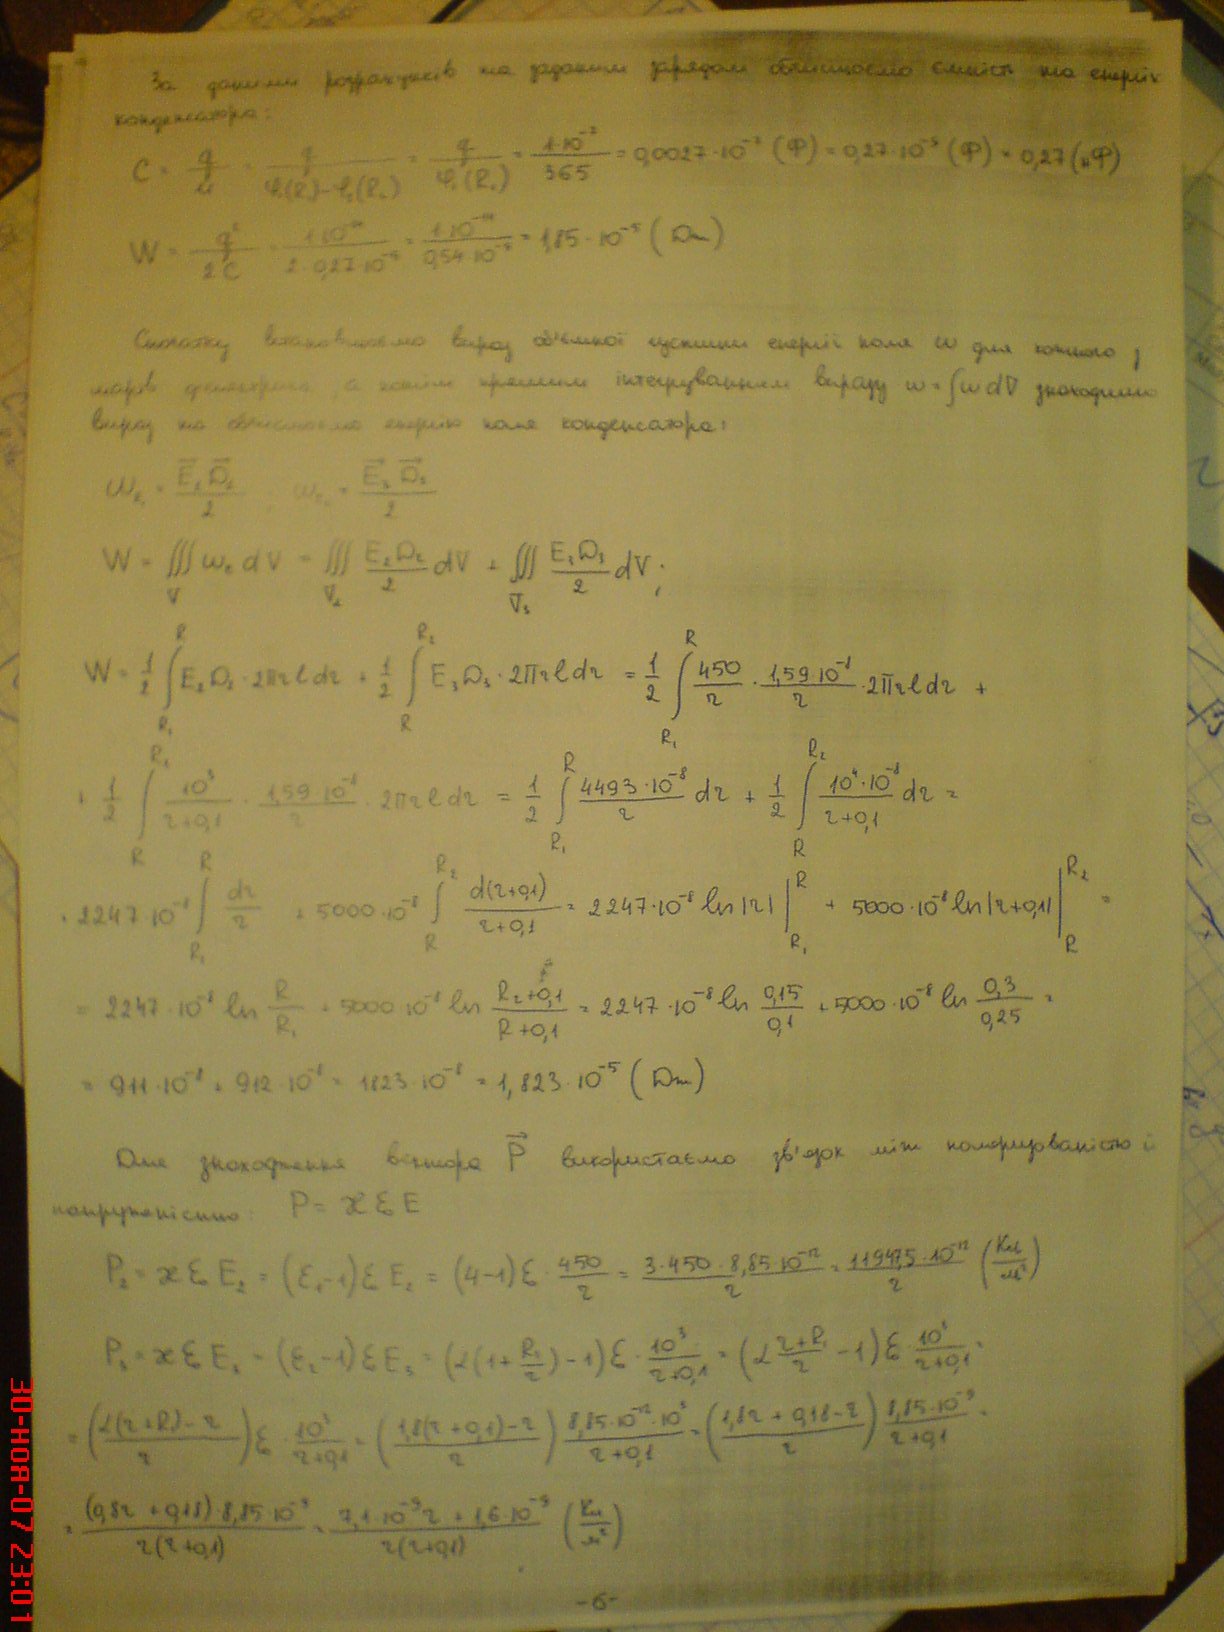 За даними розрахунків та заданим зарядом обчислюємо ємність та енергію
конденсатора:
C = q/u = q/(φ(R₁)-φ(R₂)) = q/φ(R₁) = 1·10⁻⁷/365 = 0,0027·10⁻⁷ (Ф) = 0,27·10⁻⁹ (Ф) = 0,27 (нФ)
W = q²/2C = 1·10⁻¹⁴/2·0,27·10⁻⁹ = 1·10⁻¹⁴/0,54·10⁻⁹ = 1,85·10⁻⁵ (Дж)
Спочатку встановлюємо вираз об'ємної густини енергії поля w для кожного з
шарів діелектрика, а потім прямим інтегруванням виразу w = ∫w dV знаходимо
вираз та обчислюємо енергію поля конденсатора:
E₂D₂/2 E₃D₃/2
W = ∭ wₑ dV = ∭ E₂D₂/2 dV + ∭ E₃D₃/2 dV;
W = 1/2 ∫ E₂D₂·2πrldr + 1/2 ∫ E₃D₃·2πrldr = 1/2 ∫ 450/r · 1,59·10⁻⁸/r · 2πrldr +
+ 1/2 ∫ 10³/r+0,1 · 1,59·10⁻⁸/r · 2πrldr = 1/2 ∫ 4493·10⁻⁸/r dr + 1/2 ∫ 10⁴·10⁻⁸/r+0,1 dr =
= 2247·10⁻⁸ ∫ dr/r + 5000·10⁻⁸ ∫ d(r+0,1)/r+0,1 = 2247·10⁻⁸ ln|r| |R R₁ + 5000·10⁻⁸ ln|r+0,1| |R₂ R =
= 2247·10⁻⁸ ln R/R₁ + 5000·10⁻⁸ ln R₂+0,1/R+0,1 = 2247·10⁻⁸ ln 0,15/0,1 + 5000·10⁻⁸ ln 0,3/0,25 =
= 911·10⁻⁸ + 912·10⁻⁸ = 1823·10⁻⁸ = 1,823·10⁻⁵ (Дж)
Для знаходження вектора P⃗ використаємо зв'язок між поляризованістю й
напруженістю: P = ϰ ε E
P₂ = ϰ ε E₂ = (ε₂-1) ε E₂ = (4-1) ε · 450/r = 3·450·8,85·10⁻¹²/r = 11947,5·10⁻¹²/r (Кл/м²)
P₃ = ϰ ε E₃ = (ε₃-1) ε E₃ = (α(1+R₁/r)-1) ε · 10³/r+0,1 = (α r+R₁/r -1) ε · 10³/r+0,1 =
= (α(r+R₁)-r/r) ε · 10³/r+0,1 = (1,8(r+0,1)-r/r) 8,85·10⁻¹²·10³/r+0,1 = (1,8r+0,18-r/r) 8,85·10⁻⁹/r+0,1 =
= (0,8r+0,18)·8,85·10⁻⁹/r(r+0,1) = 7,1·10⁻⁹r + 1,6·10⁻⁹/r(r+0,1) (Кл/м²)
-6-
30-НОЯ-07 23:01